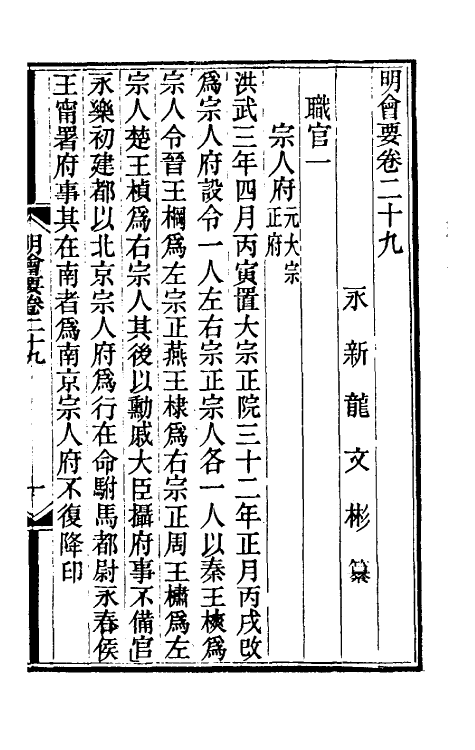 明會要卷二十九
永新龍文彬纂
職官一
宗人府元大宗正府
洪武三年四月丙寅置大宗正院三十二年正月丙戌改
爲宗人府設令一人左右宗正宗人各一人以秦王樉爲
宗人令晉王棡爲左宗正燕王棣爲右宗正周王橚爲左
宗人楚王楨爲右宗人其後以勳戚大臣攝府事不備官
永樂初建都以北京宗人府爲行在命駙馬都尉永春侯
王甯署府事其在南者爲南京宗人府不復降印
明會要卷二十九
一